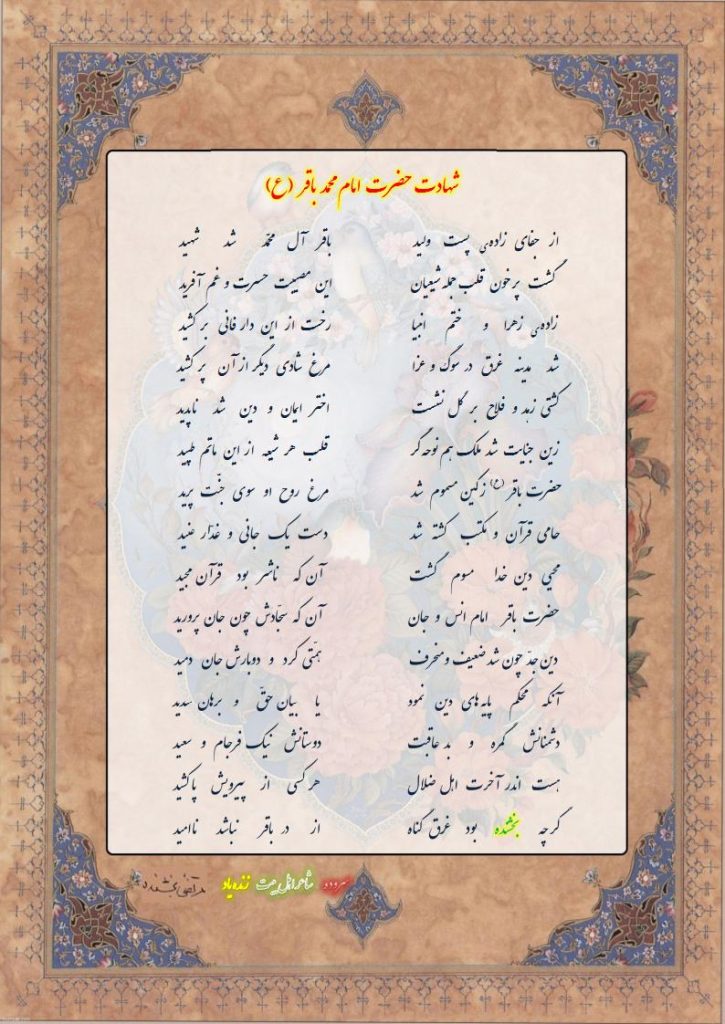 شهادت حضرت امام محمد باقر (ع)
از جفای زاده‌ی پست ولید باقر آل محمد شد شهید
گشت پرخون قلب جمله شیعیان این مصیبت حسرت و غم آفرید
زاده‌ی زهرا و ختم انبیا رخت از این دار فانی بر کشید
شد مدینه غرق در سوگ و عزا مرغ شادی دیگر از آن پر کشید
کشتی زهد و فلاح بر گل نشست اختر ایمان و دین شد ناپدید
زین جنایت شد ملک هم نوحه گر قلب هر شیعه از این ماتم طپید
حضرت باقر (ع) زکین مسموم شد مرغ روح او سوی جنّت پرید
حامی قرآن و مکتب کشته شد دست یک جانی و غدّار عنید
محیی دین خدا مسموم گشت آن که ناشر بود قرآن مجید
حضرت باقر امام انس و جان آن که سجّادش چون جان پرورید
دین جدّ چون شد ضعیف و منحرف همّتی کرد و دوبارش جان دمید
آنکه محکم پایه های دین نمود با بیان حقّ و برهان سدید
دشمنانش گمره و بد عاقبت دوستانش نیک فرجام و سعید
هست اندر آخرت اهل ضلال هر کسی از پیرویش پا کشید
گر چه بخشنده بود غرق گناه از در باقر نباشد ناامید
سروده شاعر اهل بیت زنده یاد